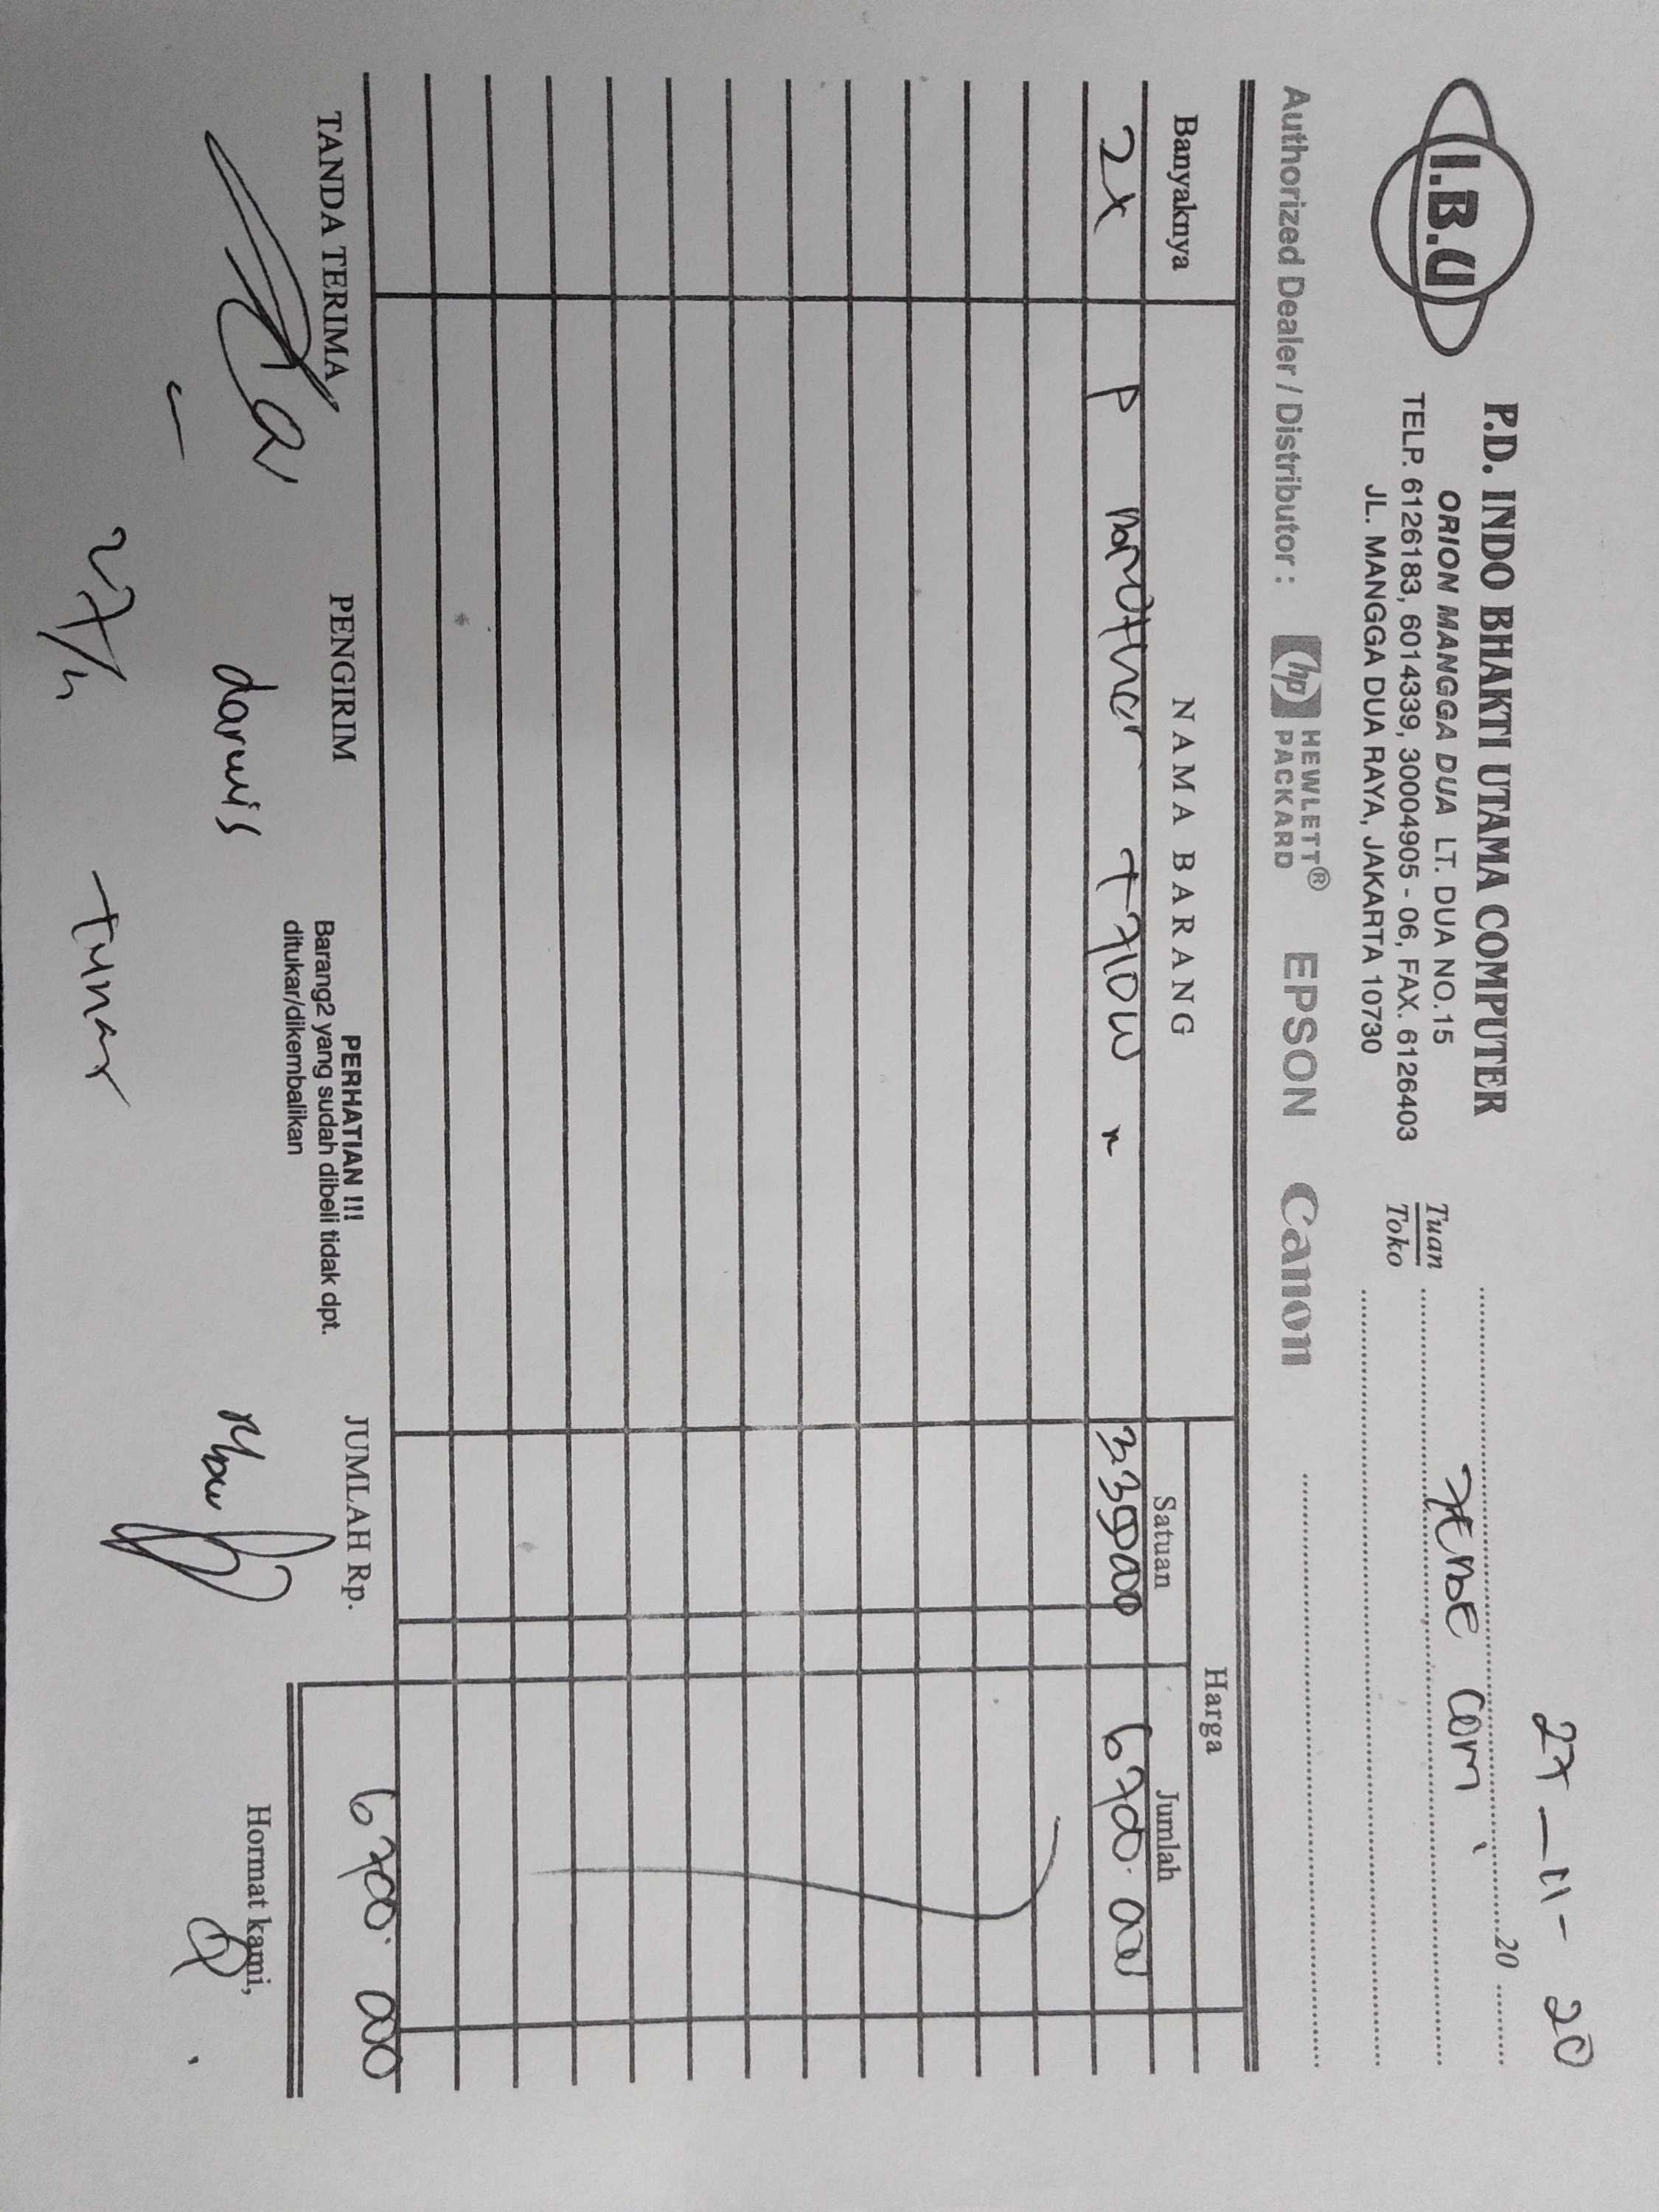 27-11-20
I.B.U
P.D. INDO BHAKTI UTAMA COMPUTER
ORION MANGGA DUA LT. DUA NO.15
TELP. 6126183, 6014339, 30004905 - 06, FAX. 6126403
JL. MANGGA DUA RAYA, JAKARTA 10730
20
Tuan
Toko
com
Authorized Dealer / Distributor : hp HEWLETT® PACKARD EPSON Canon
Banyaknya NAMA BARANG Harga
Satuan Jumlah
2x P brother T710W 6700.000
TANDA TERIMA PENGIRIM JUMLAH Rp. 6700.000
PERHATIAN !!!
Barang2 yang sudah dibeli tidak dpt.
ditukar/dikembalikan
Hormat kami,
darwis
27/11 tunar